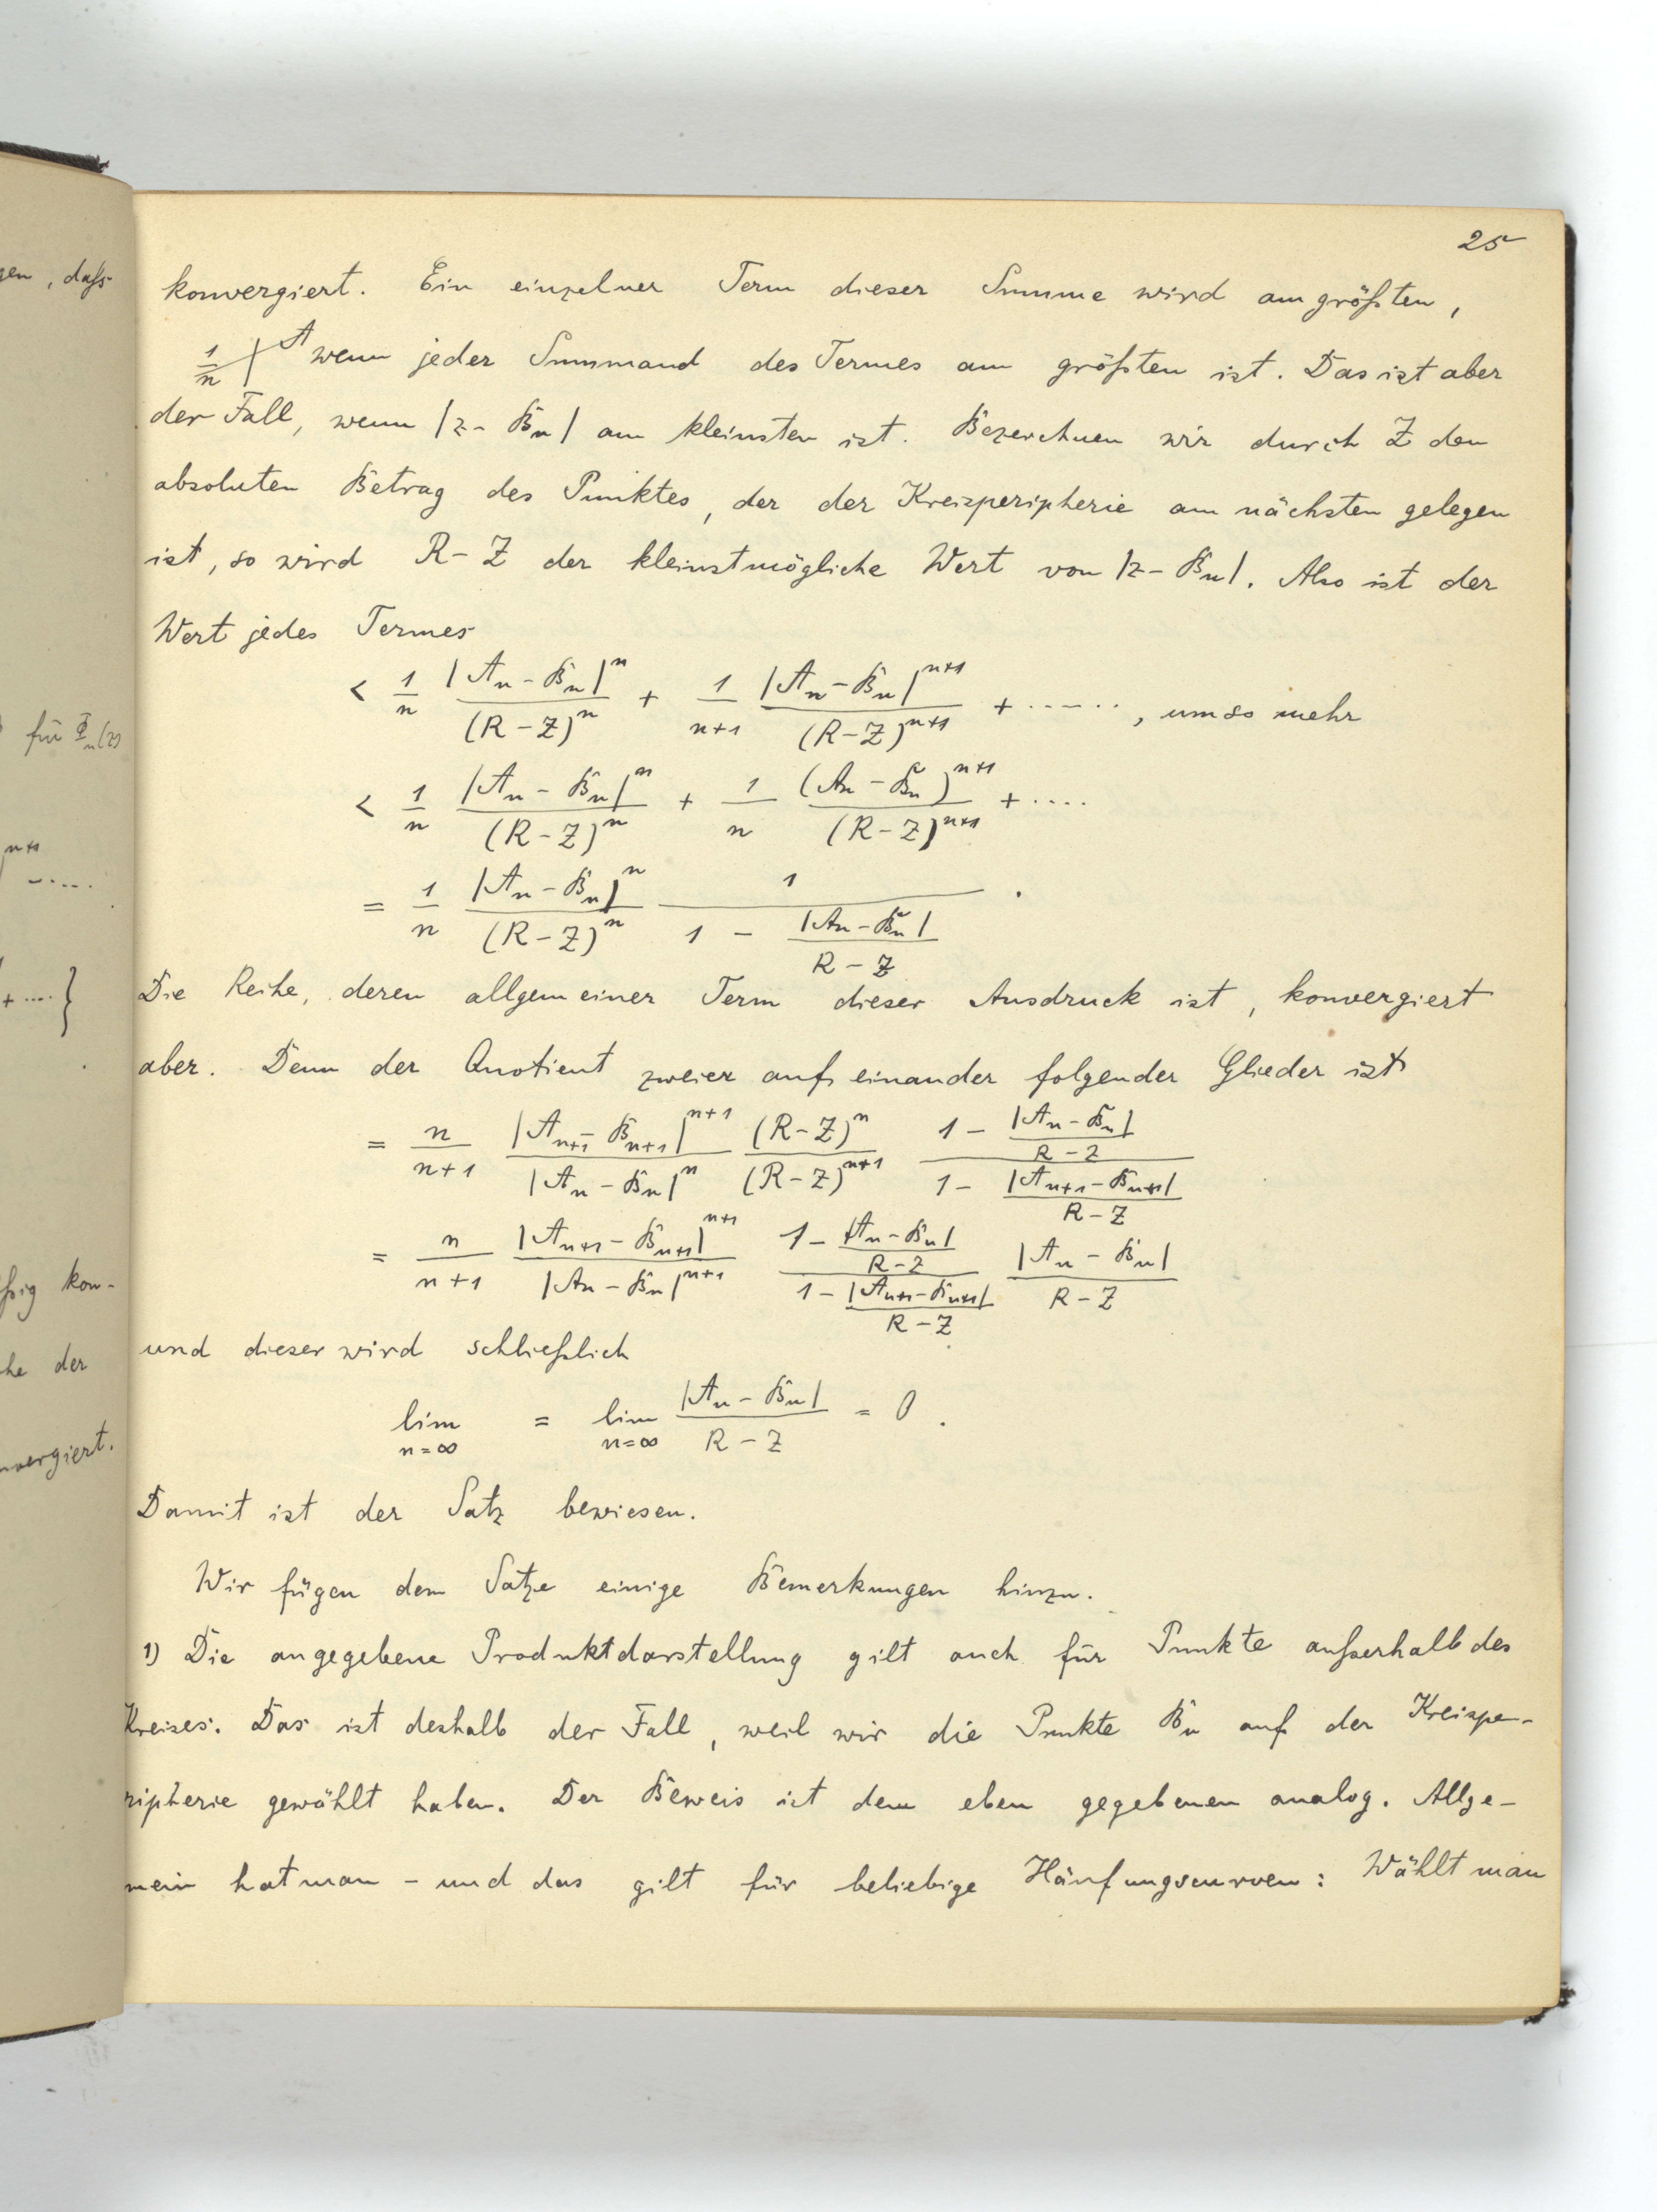 25
konvergiert. Ein einzelner Term dieser Summe wird am größten,
wenn jeder Summand des Termes am größten ist. Das ist aber
der Fall, wenn |z - Bₙ| am kleinsten ist. Bezeichnen wir durch Z den
absoluten Betrag des Punktes, der der Kreisperipherie am nächsten gelegen
ist, so wird R - Z der kleinstmögliche Wert von |z - Bₙ|. Also ist der
Wert jedes Termes
< 1/n |Aₙ - Bₙ|ⁿ/(R - Z)ⁿ + 1/(n+1) |Aₙ - Bₙ|ⁿ⁺¹/(R - Z)ⁿ⁺¹ + ......, umso mehr
< 1/n |Aₙ - Bₙ|ⁿ/(R - Z)ⁿ + 1/n (Aₙ - Bₙ)ⁿ⁺¹/(R - Z)ⁿ⁺¹ + ....
= 1/n |Aₙ - Bₙ|ⁿ/(R - Z)ⁿ 1/(1 - |Aₙ - Bₙ|/(R - Z)).
Die Reihe, deren allgemeiner Term dieser Ausdruck ist, konvergiert
aber. Denn der Quotient zweier auf einander folgender Glieder ist
= n/(n+1) |Aₙ₊₁ - Bₙ₊₁|ⁿ⁺¹/|Aₙ - Bₙ|ⁿ (R - Z)ⁿ/(R - Z)ⁿ⁺¹ (1 - |Aₙ - Bₙ|/(R - Z))/(1 - |Aₙ₊₁ - Bₙ₊₁|/(R - Z))
= n/(n+1) |Aₙ₊₁ - Bₙ₊₁|ⁿ⁺¹/|Aₙ - Bₙ|ⁿ⁺¹ (1 - |Aₙ - Bₙ|/(R - Z))/(1 - |Aₙ₊₁ - Bₙ₊₁|/(R - Z)) |Aₙ - Bₙ|/(R - Z)
und dieser wird schließlich
lim n=∞ = lim n=∞ |Aₙ - Bₙ|/(R - Z) = 0.
Damit ist der Satz bewiesen.
Wir fügen dem Satze einige Bemerkungen hinzu.
1) Die angegebene Produktdarstellung gilt auch für Punkte außerhalb des
Kreises. Das ist deshalb der Fall, weil wir die Punkte Bₙ auf der Kreispe-
ripherie gewählt haben. Der Beweis ist dem eben gegebenen analog. Allge-
mein hat man - und das gilt für beliebige Häufungscurven: Wählt man